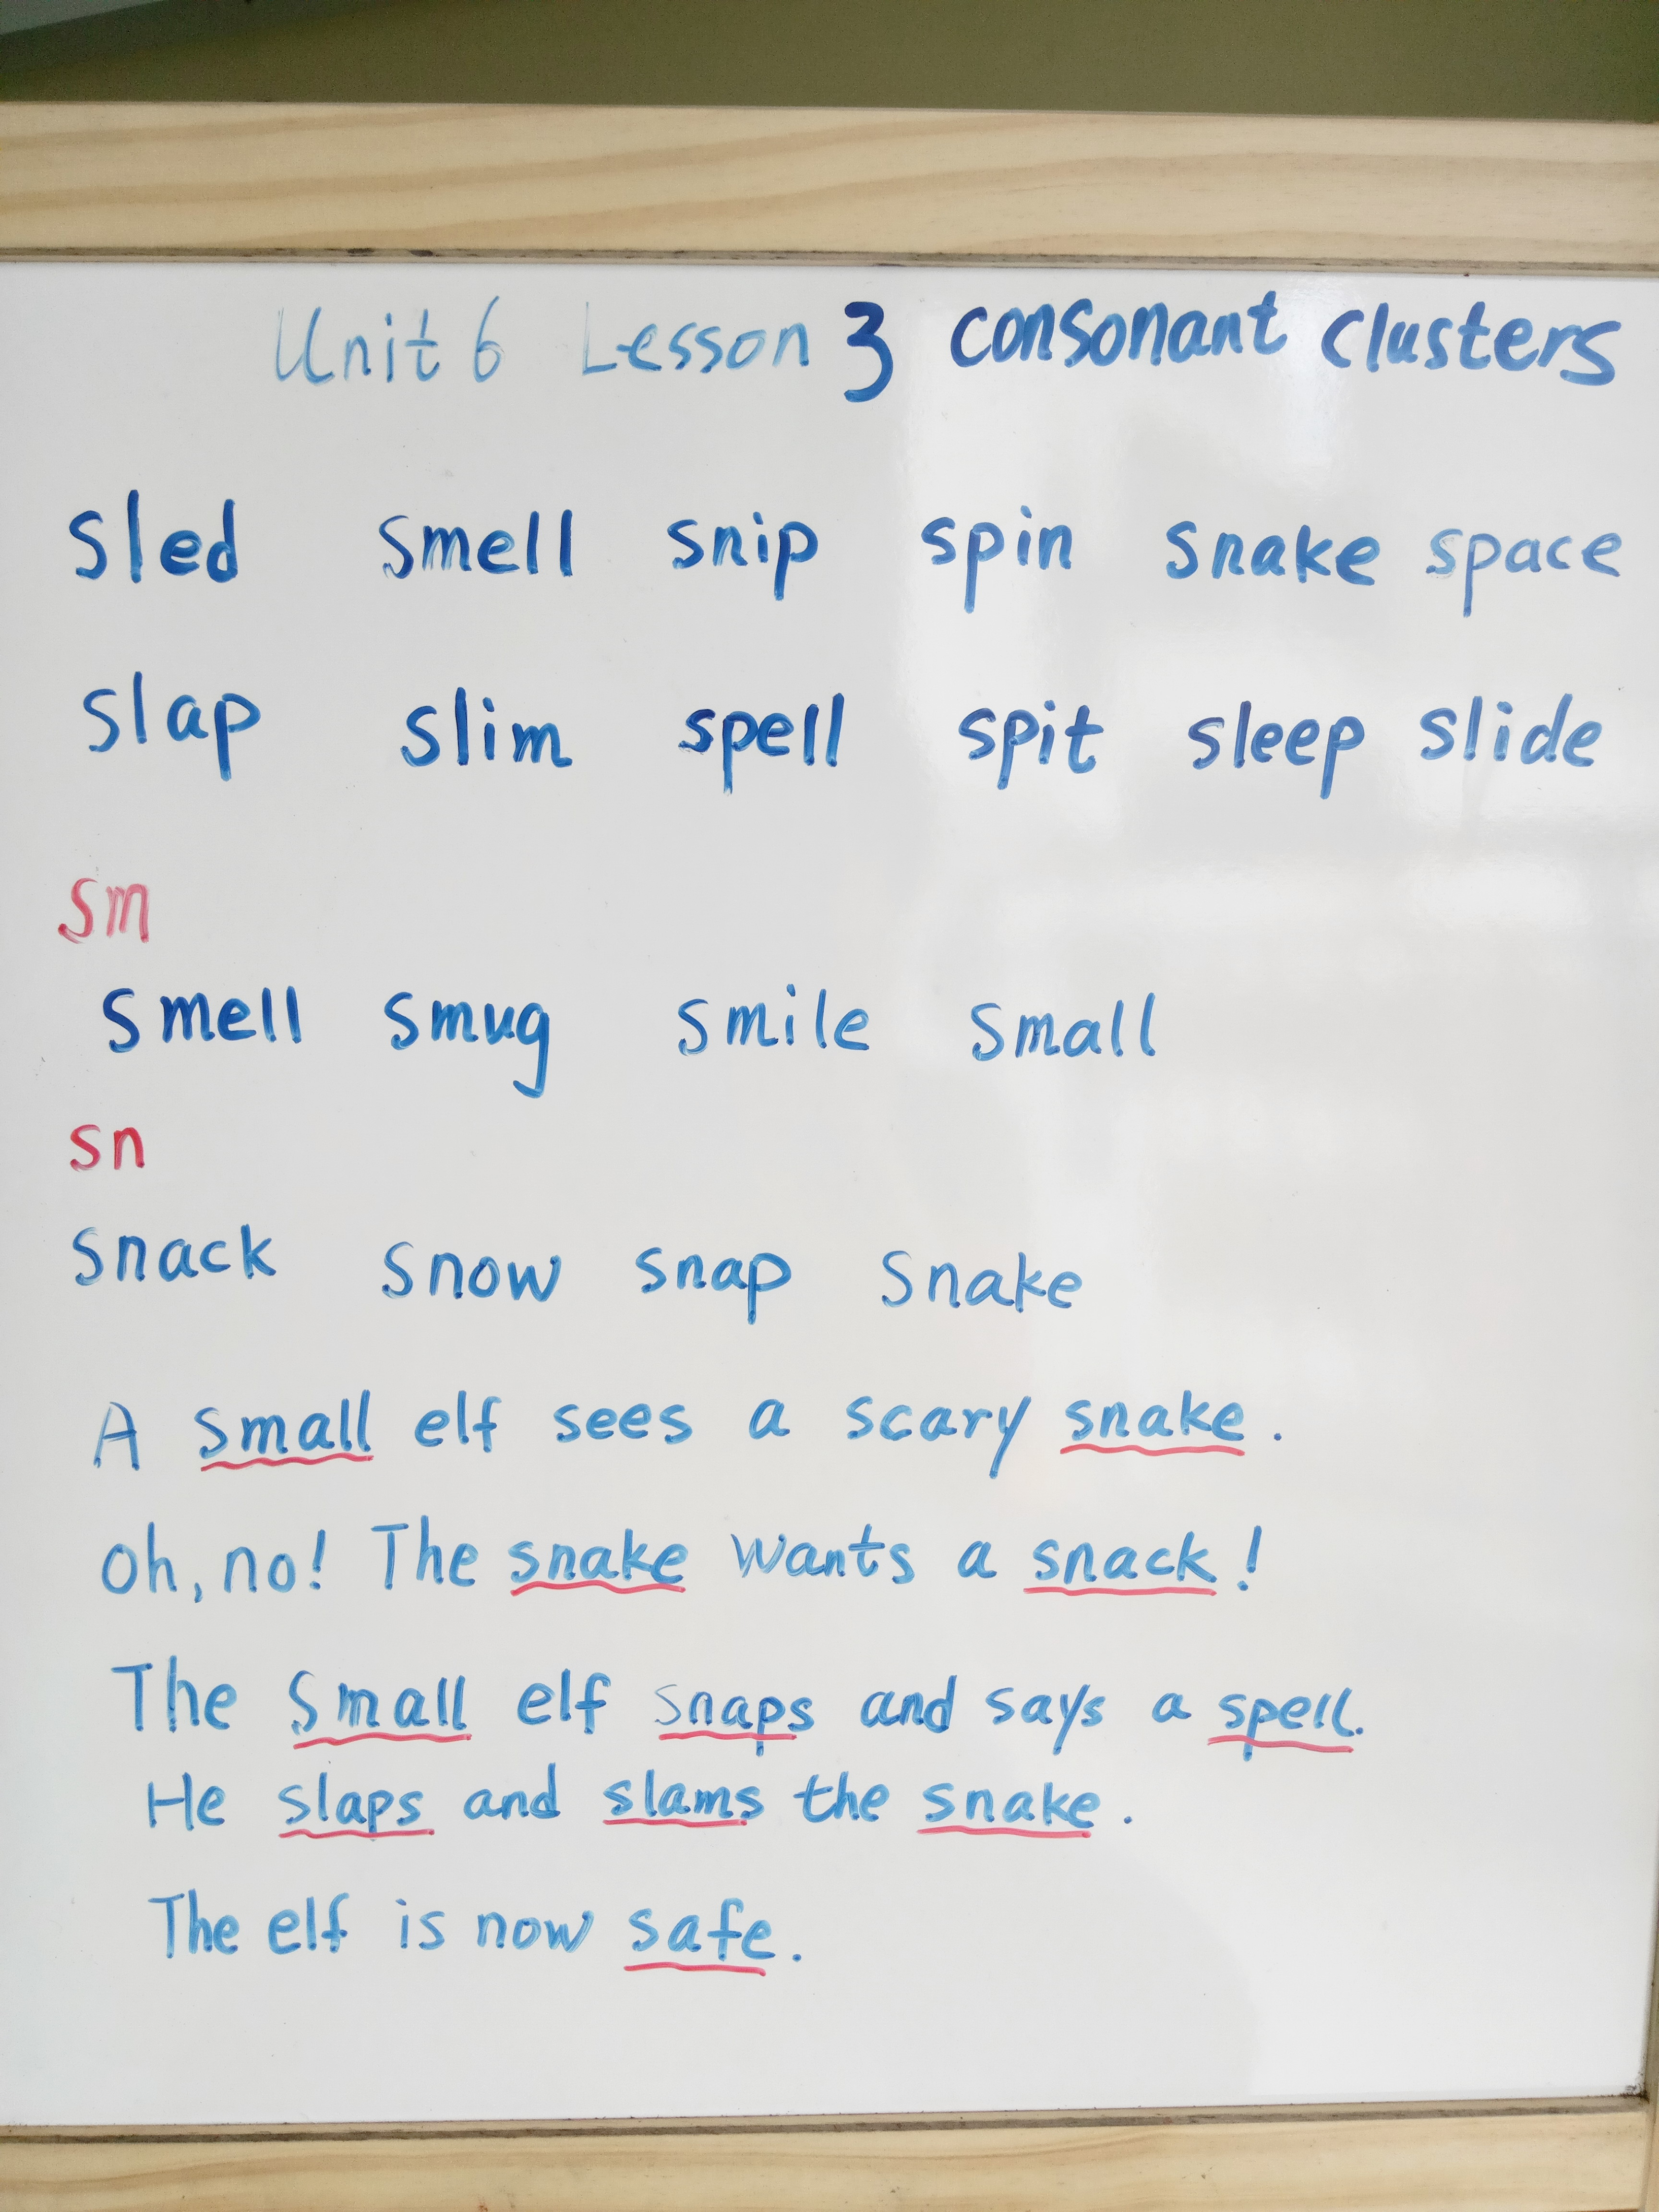 Unit 6 Lesson 3 consonant clusters
sled smell snip spin snake space
slap slim spell spit sleep slide
sm
smell smug smile small
sn
snack snow snap snake
A small elf sees a scary snake.
oh, no! The snake wants a snack!
The small elf snaps and says a spell.
He slaps and slams the snake.
The elf is now safe.